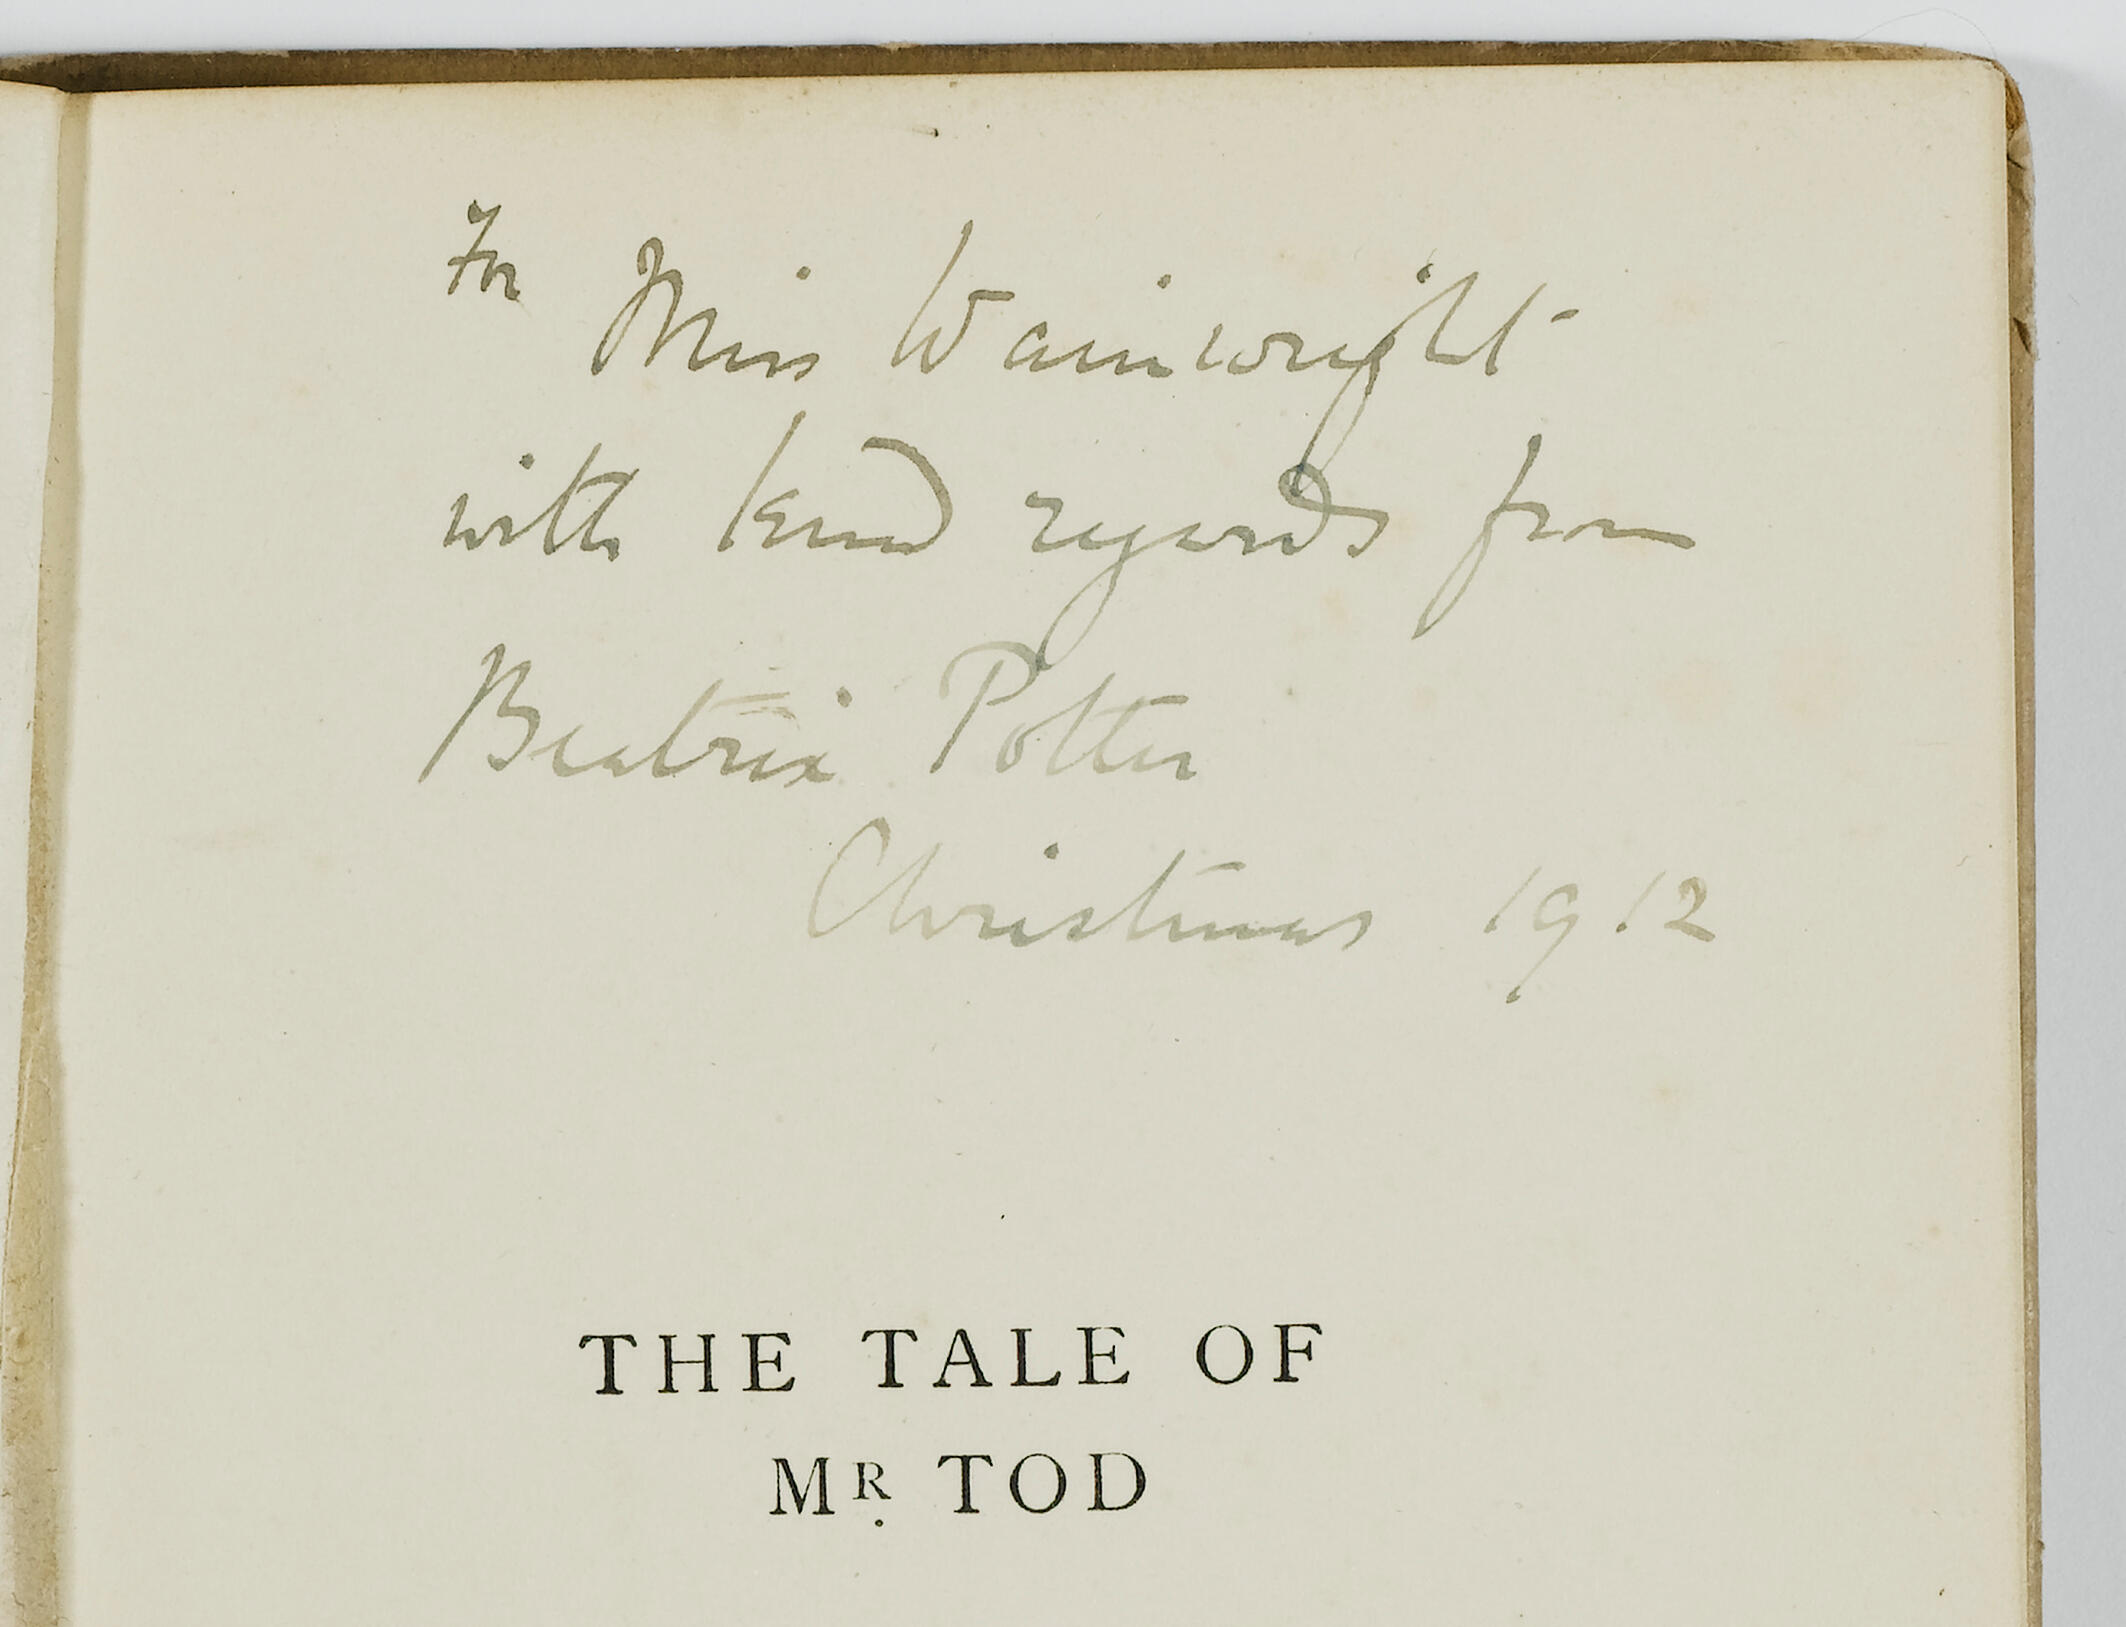 For Miss Wainwright
with kind regards from
Beatrix Potter
Christmas 1912
THE TALE OF
MR. TOD